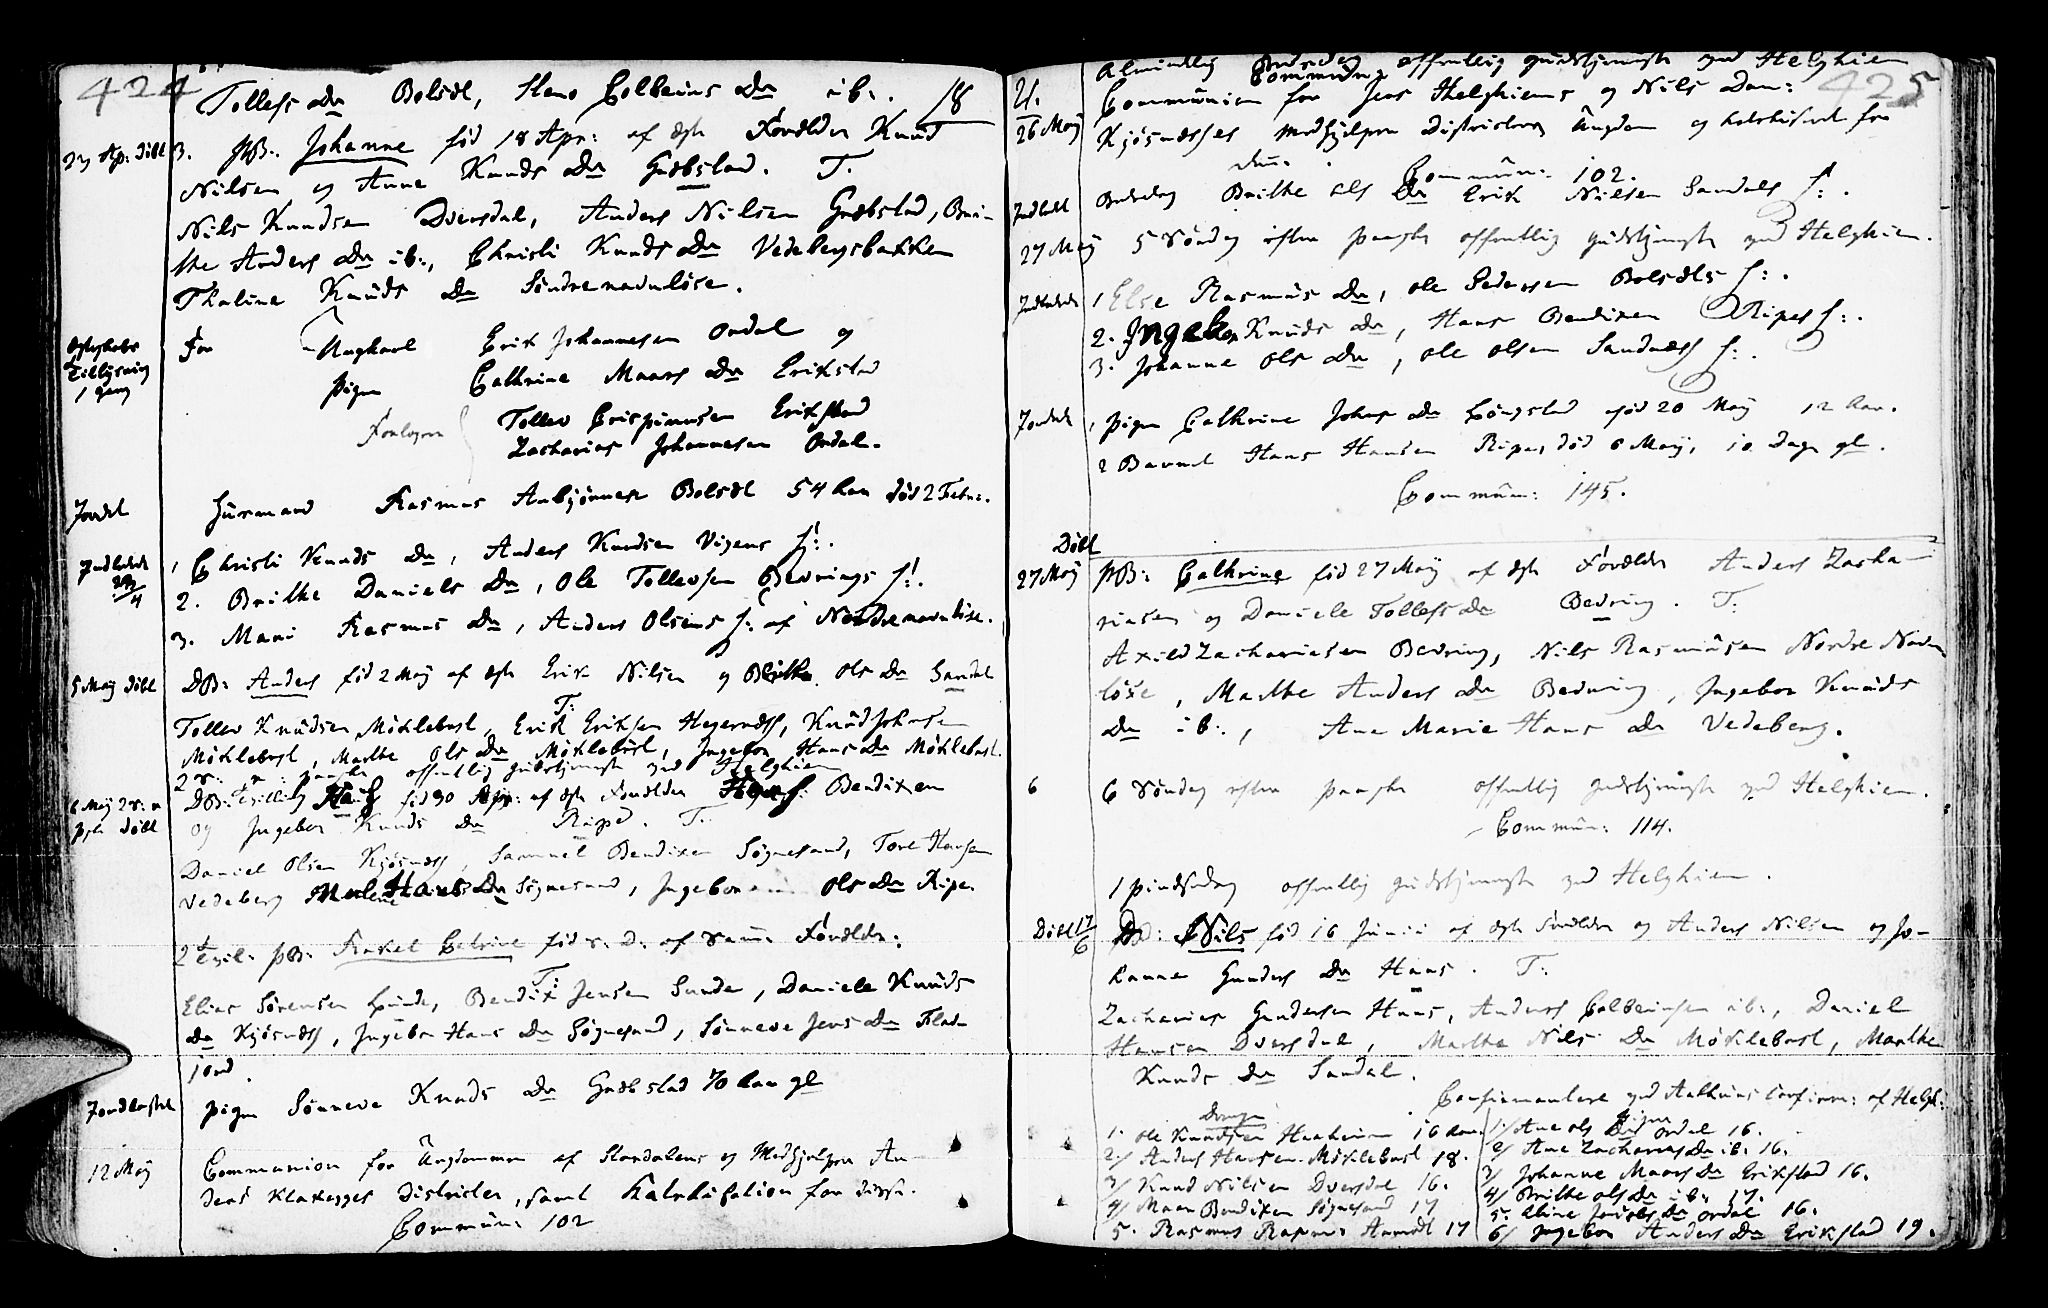 424
Tollefs Da Bolsæt, Hans Colbeins Da ib:. 18
29 Ap: Döbt 3. PB: Johanne fød 18 Apr: af ægte Forældre Knud
Nilsen og Anne Knuds Da Græbstad. T.
Nils Knudsen Dversdal, Anders Nilsen Grebstad, Bri-
the Anders Da ib:, Christi Knuds Da Vedebergsbakken
Thaline Knuds Da Söndrenavnløse.
Ægteskabs Tillysning 1 gang
For Ungkarl Erik Johannesen Ordal og
Pigen Cathrine Maars Da Erikstad
Forlovere Tollev Crispinusen Erikstad
Zacharias Johannesen Ordal.
Jordet Huusmand Rasmus Anbjörnsen Bolsæt 54 Aar död 2 Febr:.
Indledede 29/4
1 Christi Knuds Da, Anders Knudsen Vigens H:.
2. Brithe Daniels Da, Ole Tollevsen Bedrings H:.
3. Mari Rasmus Da, Anders Olsens H: af Nordrenavnløse.
5 Maÿ Döbt DB: Anders fød 2 Maÿ af ægte Erik Nilsen og Brithe Ols Da Sandal
T:
Tollev Knudsen Möklebost, Erik Eriksen Hegernæss, Knud Johnsen
Möklebost, Marthe Ols Da Möklebost, Ingebor Hans Da Möklebost.
2 S: e: paaske offentlig gudstjeneste ved Helghiem
6 Maÿ 2 S: e paaske Döbt
DB: Tvilling Hans fød 30 Apr: af ægte Forældre Hans Bendixen
og Ingebor Knuds Da Ripe. T:
Daniel Olsen Kjösnæss, Samuel Bendixen Sögnesand, Tore Hansen
Vedeberg Malene Hans Da Sögnesand, Ingebor Ols Da Ripe.
2d Tvil: PB: Rakel Petrine fød s. D. af samme Forældre:
T:
Elias Sörensen Hunde, Bendix Jensen Sunde, Daniele Knuds
Da Kjösnæss, Ingebor Hans Da Sögnesand, Sönneve Jens Da Flad-
jord.
Jordfæstet pigen Sönneve Knuds Da Grebstad 70 Aar gl
12 Maÿ Communion for Ungdommen af Stardalens og Medhjelper An-
ders Klakegges Districter, samt Katekisation for disse.
Commun: 102
425
21. Almindelig Bededag offentlig gudstjeneste ved Helghiem
Communion
26 Maÿ Communion for Jens Helghiems og Nils Dan:
Kjösnæsses medhjelper Districters Ungdom og katekiseret for
dem. Commun: 102.
Indledt Bededag Brithe Ols Da Erik Nilsen Sandals H:.
27 Maÿ 5 Söndag efter paaske offentlig gudstjeneste ved Helghiem.
Indledede 1 Else Rasmus Da, Ole Pedersen Bolsæts H:.
2. Ingebor Knuds Da, Hans Bendixen Ripes H:.
3. Johanne Ols Da, Ole Olsen Sandnæss H:.
Jordede 1 pigen Cathrine Johns Da Höugstad fød 20 Maÿ 12 Aar.
2 Barnet Hans Hansen Ripe, död 8 Maÿ, 10 Dage gl.
Commun: 145.
Döbt
27 Maÿ PB: Cathrine fød 27 Maÿ af ægte Forældre Anders Zacha-
riasen og Daniele Tollefs Da Bedring. T:
Axild Zachariasen Bedring, Nils Rasmusen Nordre Navn-
løse, Marthe Anders Da Bedring, Ingebor Knuds
Da ib:, Ane Marie Hans Da Vedeberg.
6 6 Söndag efter paaske offentlig gudstjeneste ved Helghiem.
Commun: 114.
1 pindsedag offentlig gudstjeneste ved Helghiem.
Döbt 17/6 DB: Nils fød 16 Junii af ægte Forældre Anders Nilsen og Jo-
hanne Gunders Da Haus. T:
Zacharias Gundersen Haus, Anders Colbeinsen ib:, Daniel
Hansen Dversdal, Marthe Nils Da Möklebost, Marthe
Knuds Da Sandal.
Confirmantere ved Aalhuus Confirm: af Helgh:
Drenge
1. Ole Knudsen Haaheim 16 Aar.
2/ Anders Hansen Möklebost 18.
3/ Knud Nilsen Dversdal 16.
4/ Maar Bendixen Sögnesand 17
5. Rasmus Rasmus Aamodt 17
Piger
1/ Ane Ols Da Ordal 16.
2/ Ane Zacharias Da ib: 16.
3/ Johanne Maars Da Erikstad 16.
4/ Brithe Ols Da ib: 17.
5. Aline Jacobs Da Ordal 16.
6/ Ingebor Anders Da Erikstad 19.